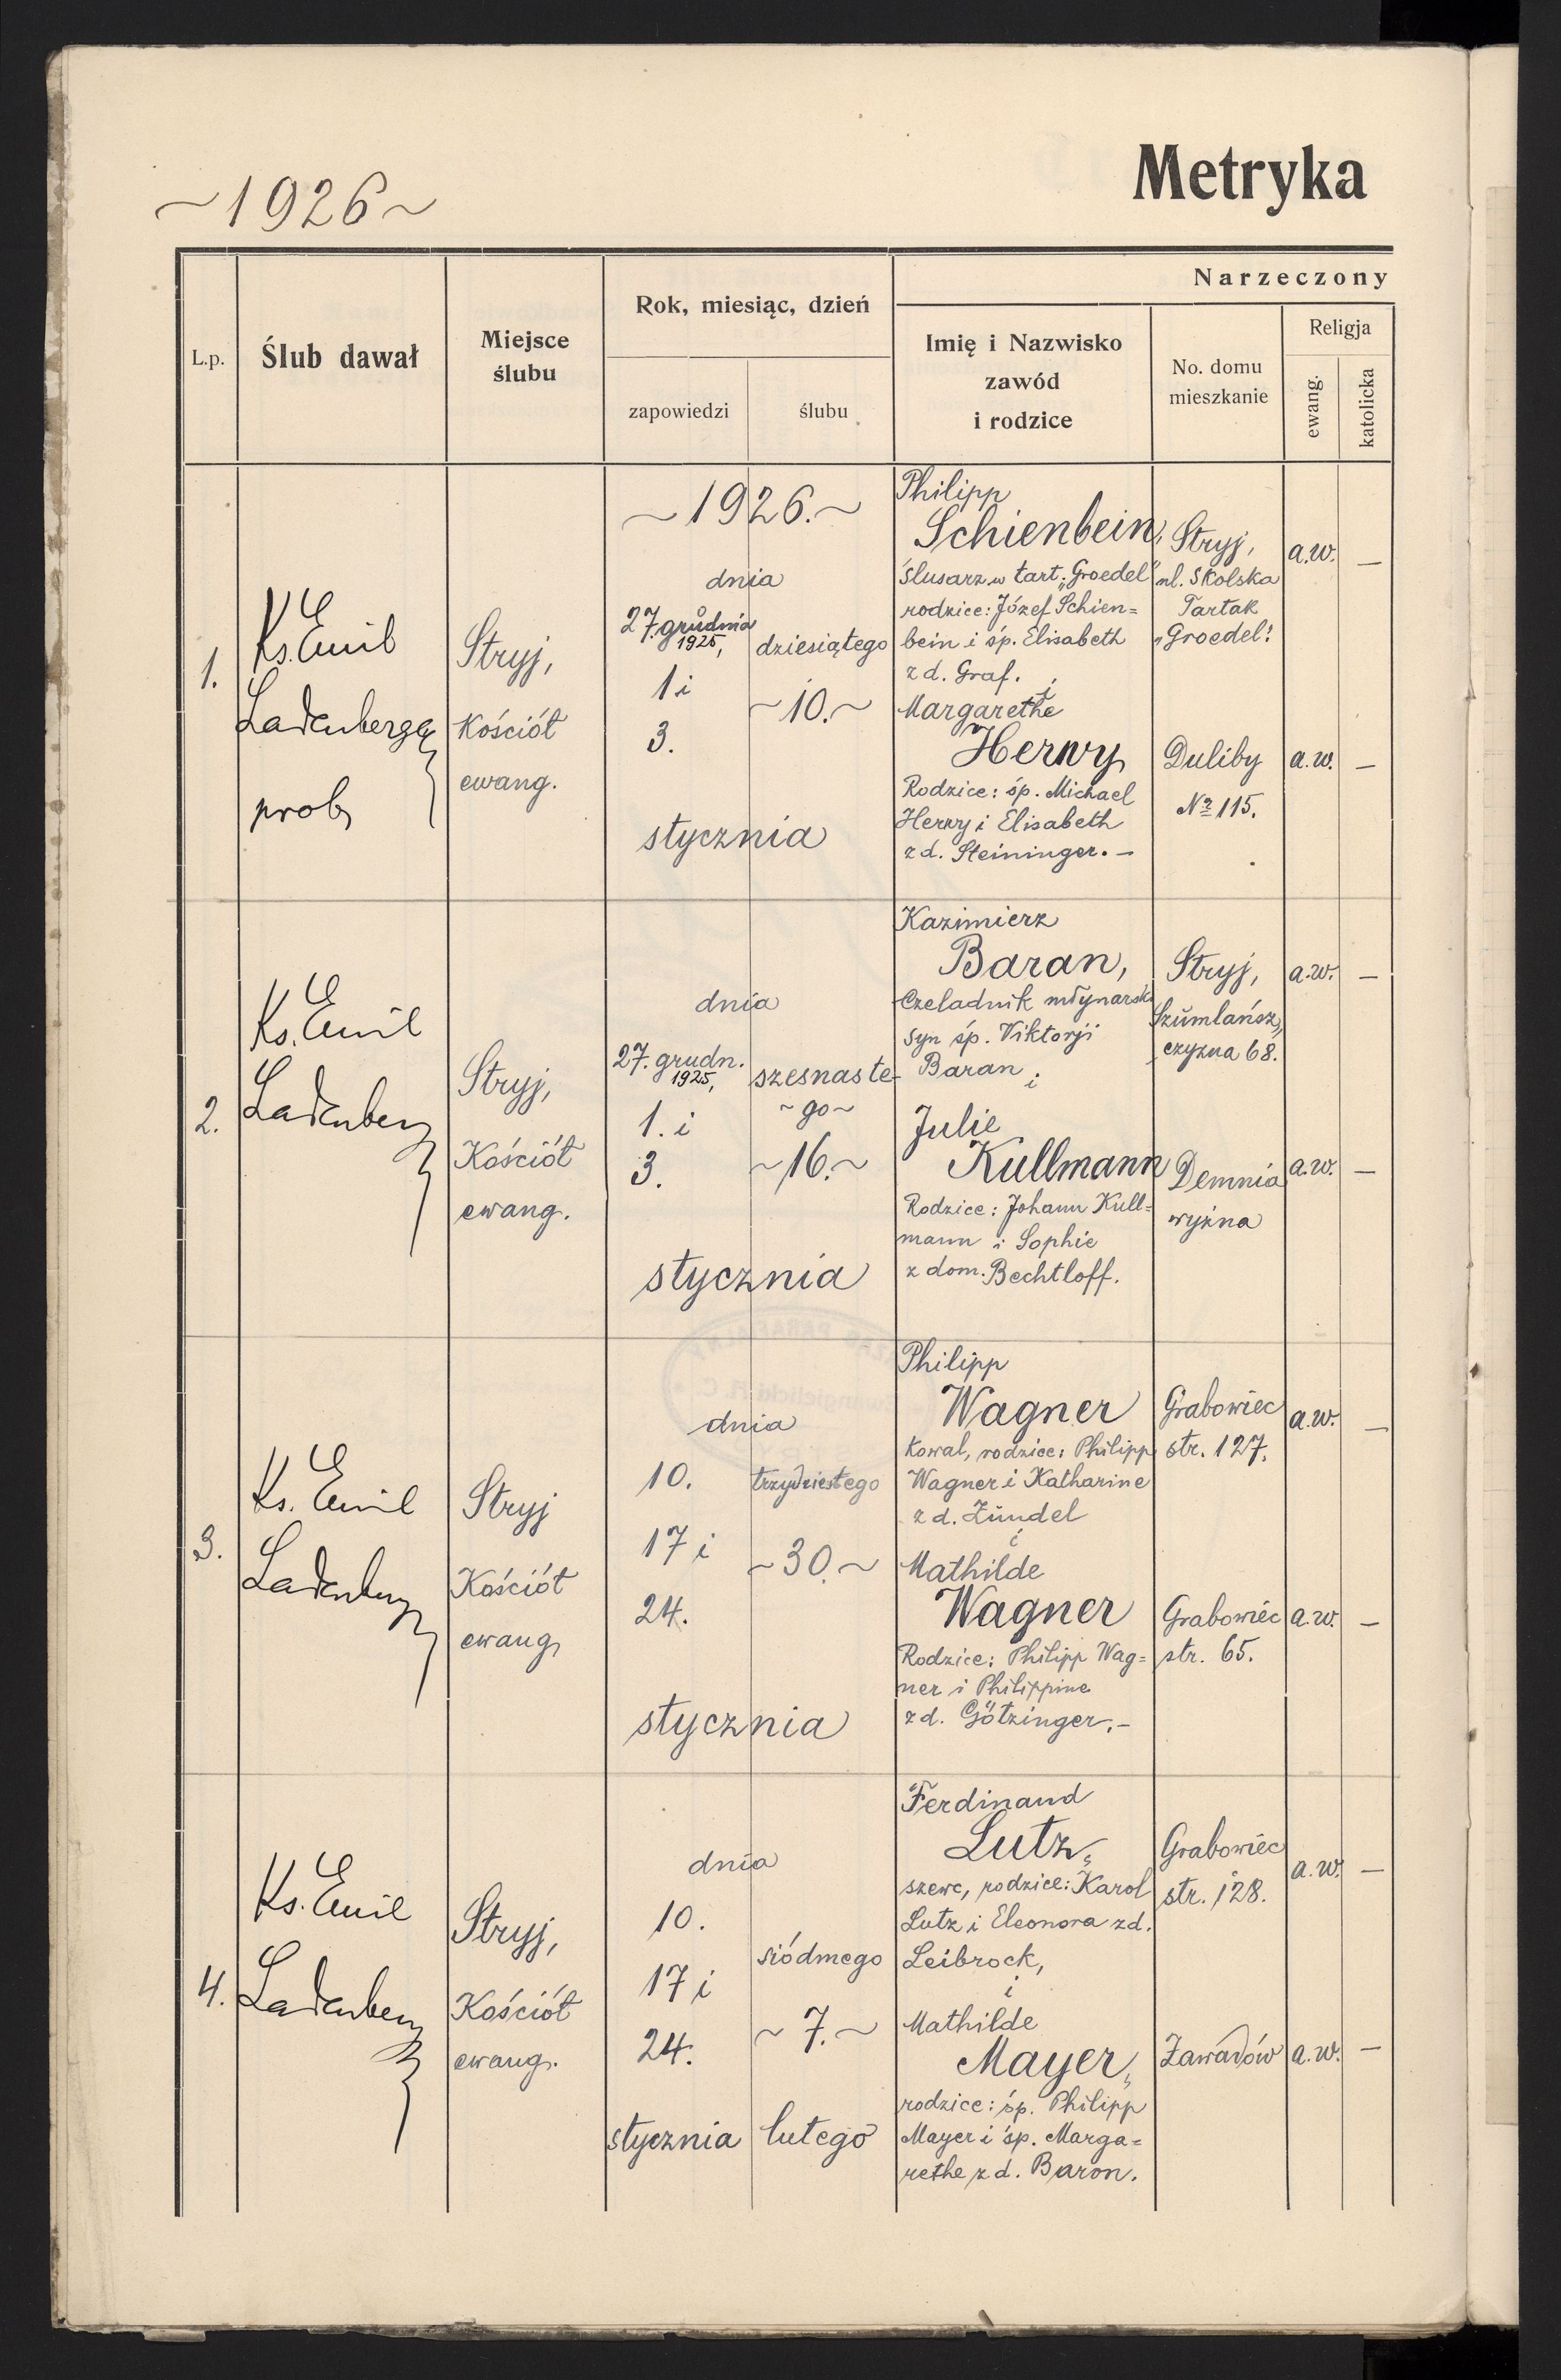 ~1926~
Metryka
L.p.
Ślub dawał
Miejsce
ślubu
Rok, miesiąc, dzień
zapowiedzi
ślubu
Narzeczony
Imię i Nazwisko
zawód
i rodzice
No. domu
mieszkanie
Religja
ewang.
katolicka
1.
Ks. Emil
Ladenberger
prob.
Stryj,
Kościół
ewang.
~1926.~
dnia
27. grudnia
1925,
1 i
3.
dziesiątego
~10.~
stycznia
Philipp
Schienbein,
ślusarz w tart. „Groedel"
rodzice: Józef Schien=
bein i śp. Elisabeth
z d. Graf.
i
Margarethe
Herwy
Rodzice: śp. Michael
Herwy i Elisabeth
z d. Steininger. –
Stryj,
ul. Skolska
Tartak
„Groedel".
a.w.
—
Duliby
№ 115.
a.w.
—
2.
Ks. Emil
Ladenberger
Stryj,
Kościół
ewang.
dnia
27. grudn.
1925,
1. i
3.
szesnaste-
~go~
~16.~
stycznia
Kazimierz
Baran,
Czeladnik młynarski
syn śp. Viktorji
Baran
i
Julie
Kullmann
Rodzice: Johann Kull=
mann i Sophie
z dom. Bechtloff.
Stryj,
Szumlańsz„
czyzna 68.
a.w.
—
Demnia
wyżna
a.w.
—
3.
Ks. Emil
Ladenberger
Stryj
Kościół
ewang.
dnia
10.
17 i
24.
trzydziestego
~30.~
stycznia
Philipp
Wagner
Kowal, rodzice: Philipp
Wagner i Katharine
z d. Zündel
i
Mathilde
Wagner
Rodzice: Philipp Wag=
ner i Philippine
z d. Götzinger. –
Grabowiec
str. 127.
a.w.
—
Grabowiec
str. 65.
a.w.
—
4.
Ks. Emil
Ladenberger
Stryj,
Kościół
ewang.
dnia
10.
17 i
24.
stycznia
siódmego
~7.~
lutego
Ferdinand
Lutz,
szewc, rodzice: Karol
Lutz i Eleonora z d.
Leibrock,
i
Mathilde
Mayer,
rodzice: śp. Philipp
Mayer i śp. Marga=
rethe z d. Baron.
Grabowiec
str. 128.
a.w.
—
Zawadów
a.w.
—